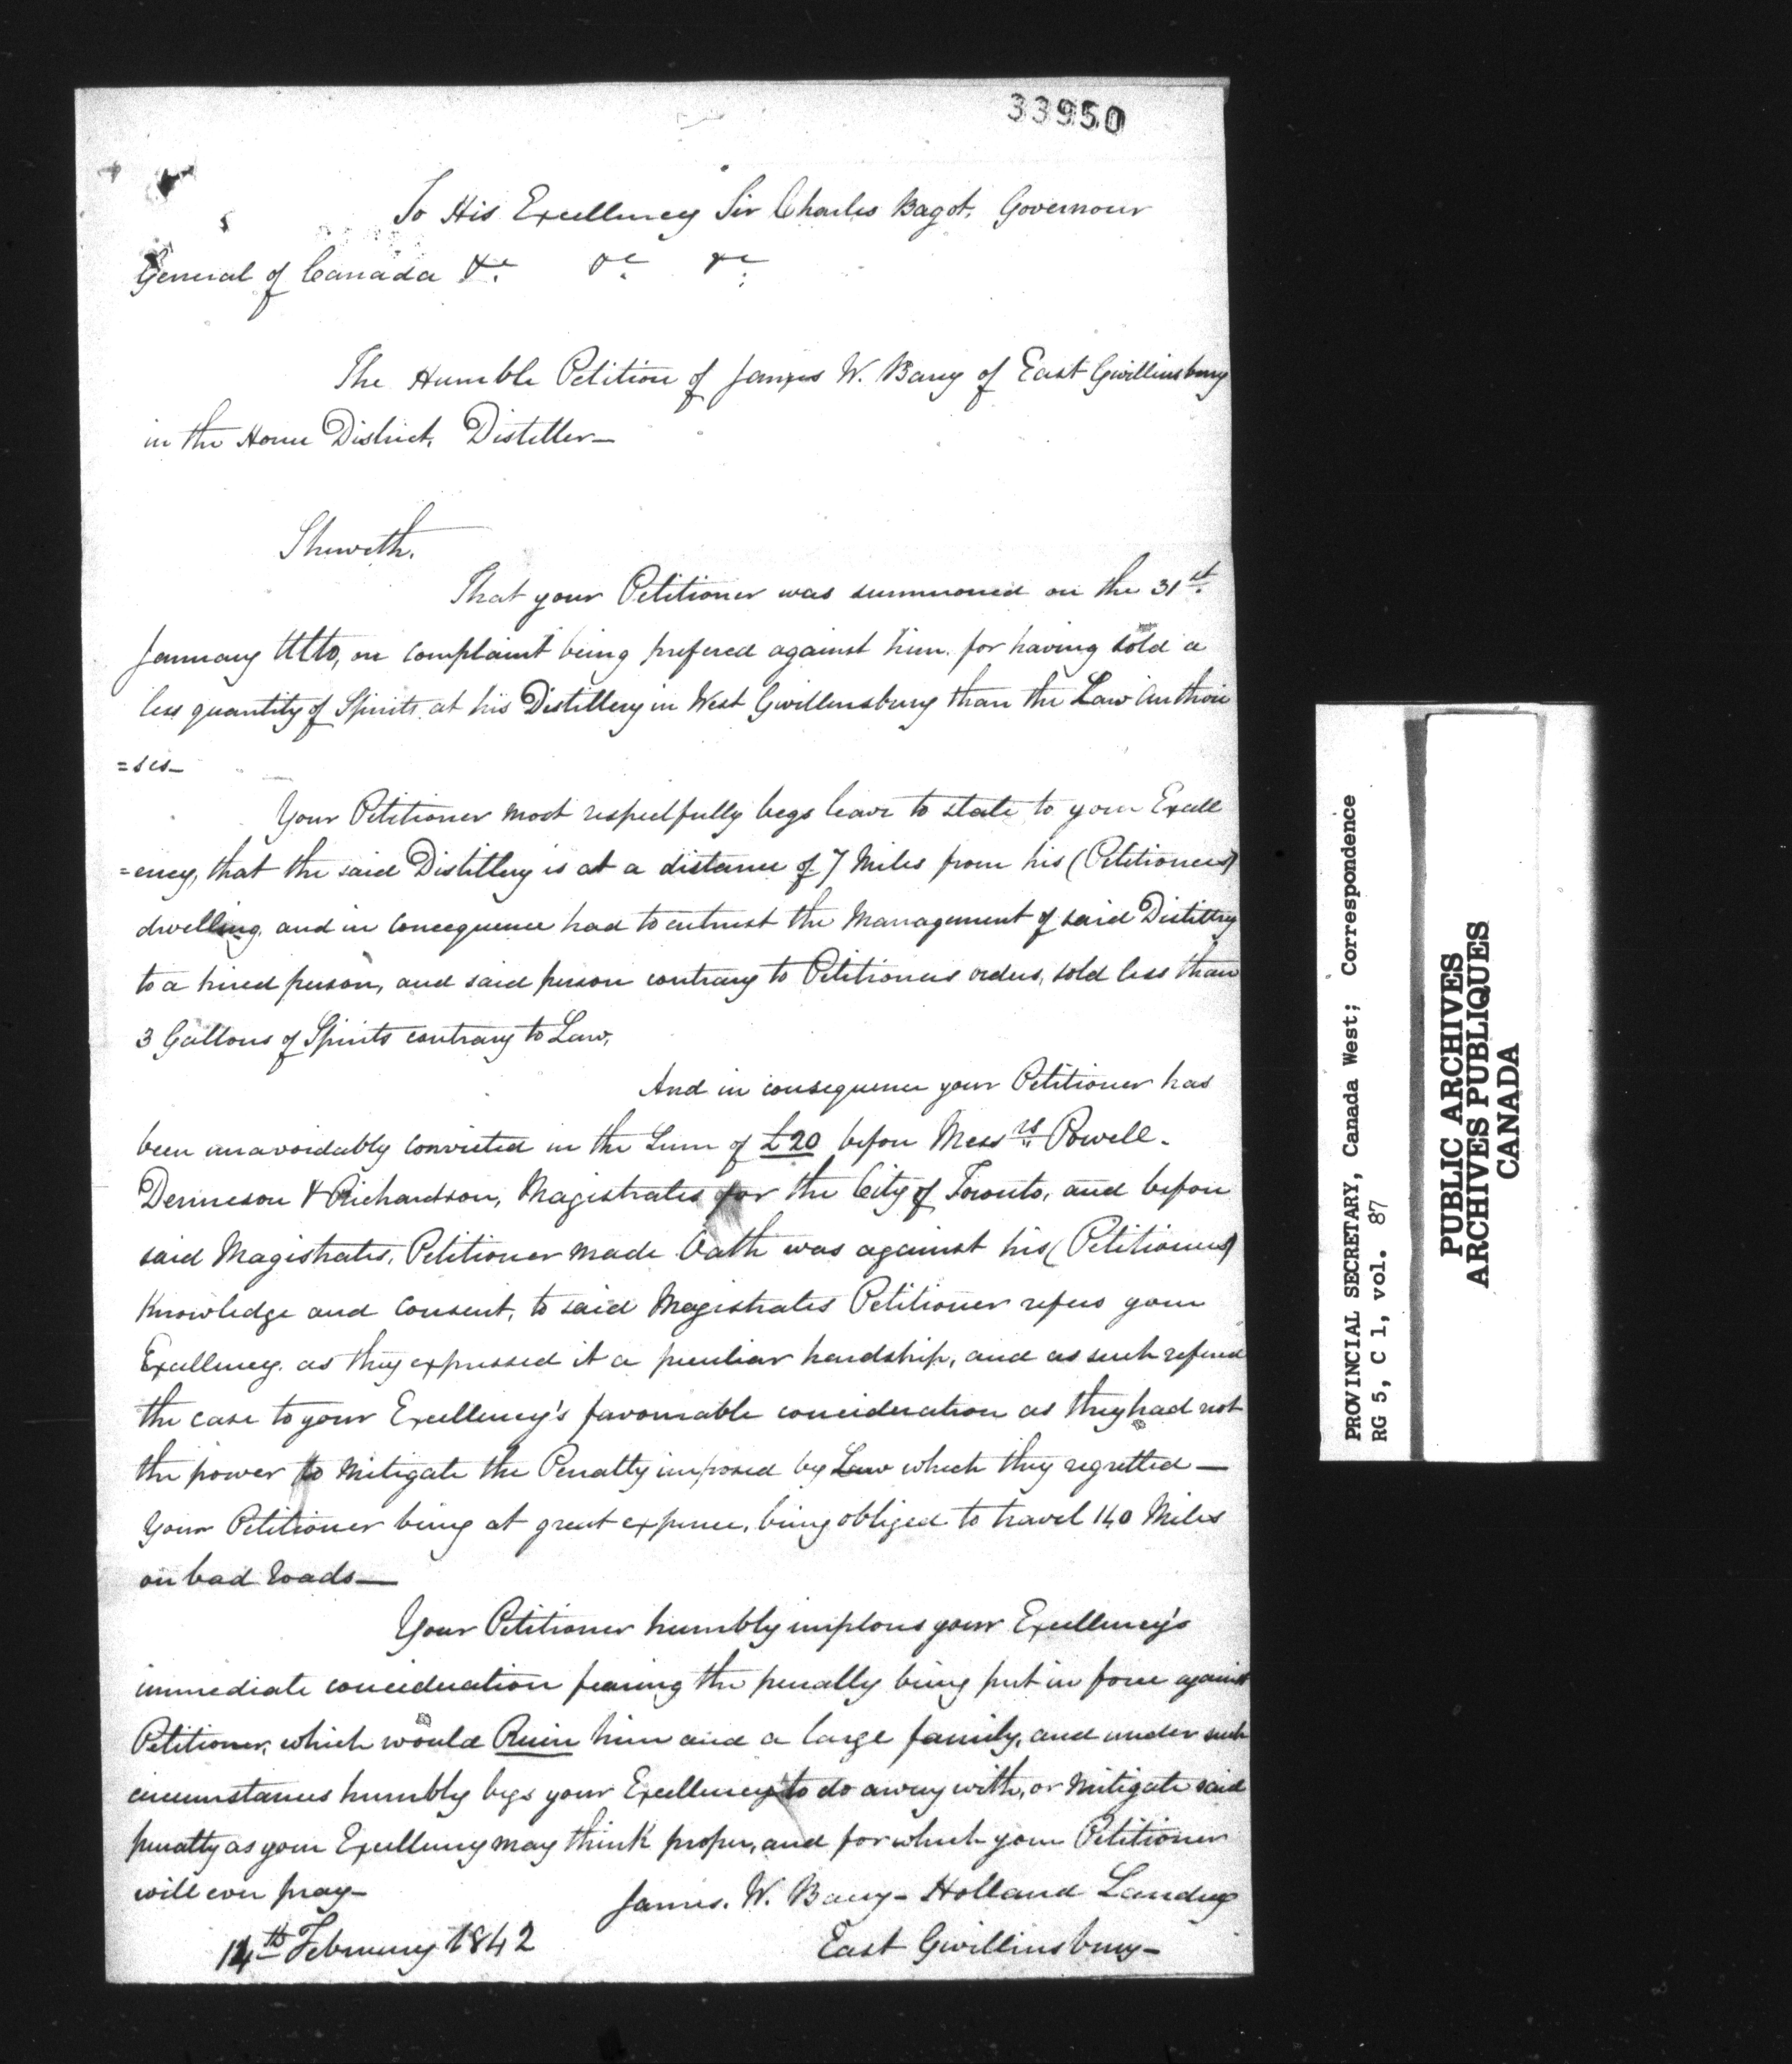 33950
To His Excellency Sir Charles Bagot, Governour
General of Canada &c. &c. &c.
The Humble Petition of James W. Barry of East Gwillinsbury
in the Home District, Distiller—
Sheweth.
That your Petitioner was summoned on the 31st
January Ulto, on complaint being prefered against him for having sold a
less quantity of Spirits at his Distillery in West Gwillinsbury than the Law Authori
=ses—
Your Petitioner most respectfully begs leave to state to your Excell
=ency, that the said Distillery is at a distance of 7 Miles from his (Petitioners)
dwelling, and in concequence had to entrust the Management of said Distillery
to a hired person, and said person contrary to Petitioners orders, sold less than
3 Gallons of Spirits contrary to Law,
And in consequence your Petitioner has
been unavoidably convicted in the Sum of £20 before Messrs Powell—
Denneson & Richardson, Magistrates for the City of Toronto, and before
said Magistrates, Petitioner made Oath was against his (Petitioners)
Knowledge and Consent, to said Magistrates Petitioner refers your
Excellency. as they expressed it a peculiar hardship, and as such refered
the case to your Excellency's favourable concideration as they had not
the power to Mitigate the Penalty imposed by Law which they regretted—
Your Petitioner being at great expence, being obliged to travel 140 Miles
on bad roads—
Your Petitioner humbly implores your Excellency's
immediate concideration fearing the penalty being put in force against
Petitioner, which would Ruin him and a large family, and under such
circumstances humbly begs your Excellency to do away with, or Mitigate said
penalty as your Excellency may think proper, and for which your Petitioner
will ever pray—
James. W. Barry— Holland Landing
14th February 1842
East Gwillinsbury—
PROVINCIAL SECRETARY, Canada West; Correspondence
RG 5, C 1, vol. 87
PUBLIC ARCHIVES
ARCHIVES PUBLIQUES
CANADA